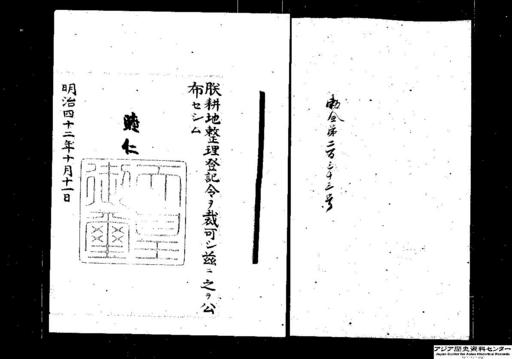 勅令第二百三十三号
朕耕地整理登記令ヲ裁可シ茲ニ之ヲ公
布セシム
睦仁
天皇御璽
明治四十二年十月十一日
アジア歴史資料センター
Japan Center for Asian Historical Records